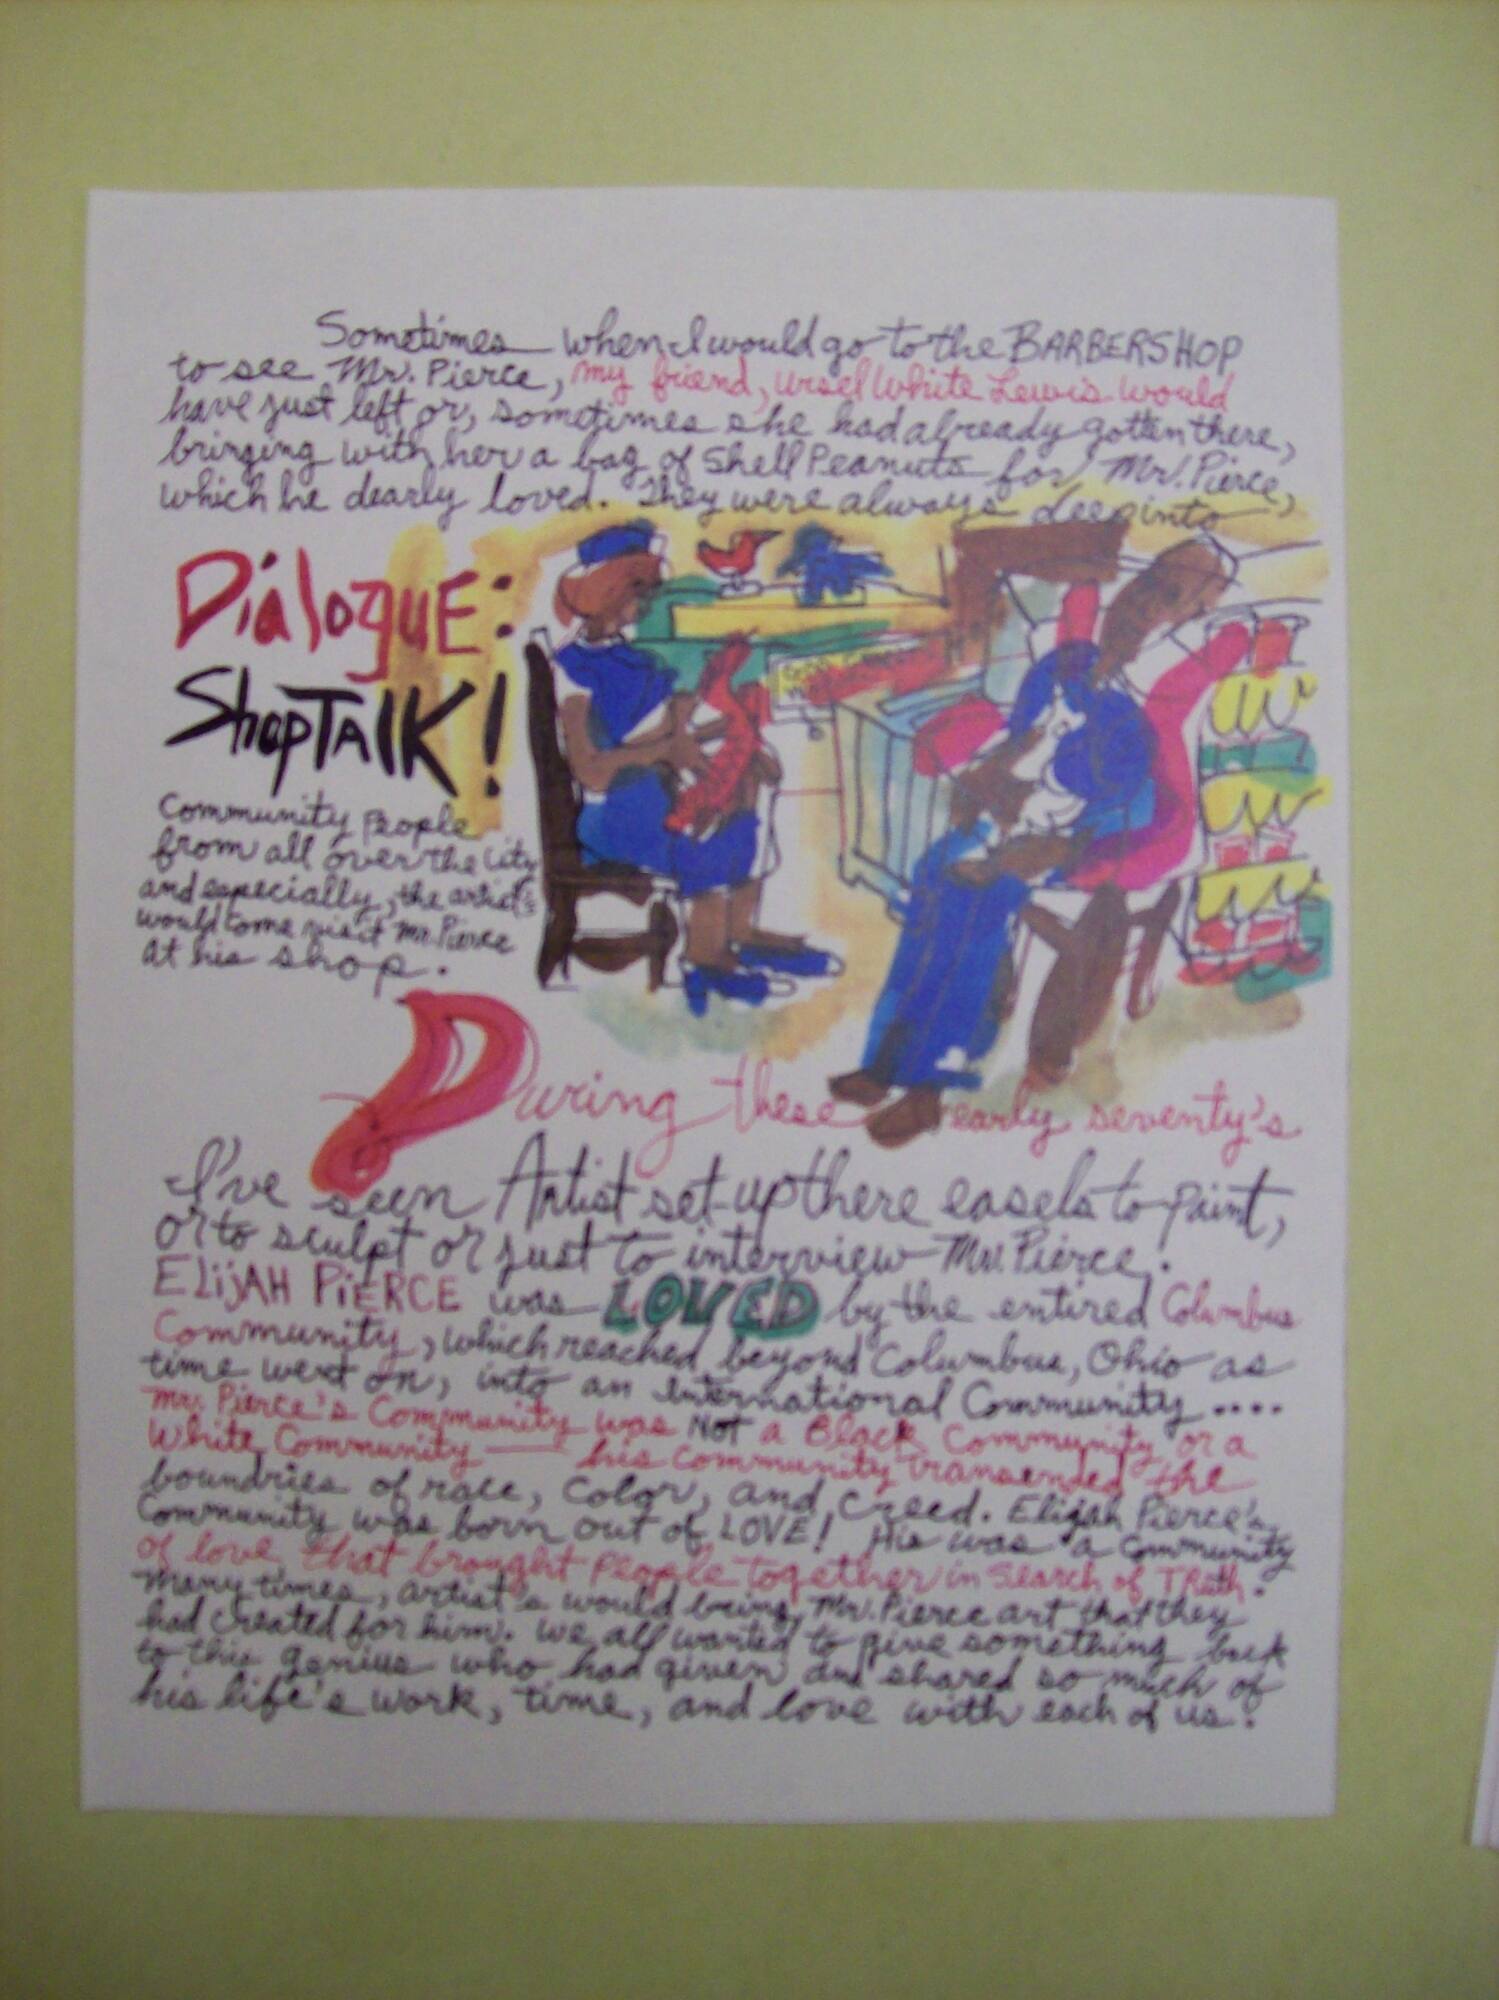 Sometimes when I would go to the BARBERSHOP
to see Mr. Pierce, my friend, Ursel White Lewis would
have just left or, sometimes she had already gotten there,
bringing with her a bag of Shell Peanuts for Mr. Pierce,
which he dearly loved. They were always deep into
DialoguE:
ShopTAlK!
Community People
from all over the City
and especially, the artist's
would come visit Mr. Pierce
At his shop.
During these early seventy's
I've seen Artist set-up there easels to paint,
or to sculpt or just to interview Mr. Pierce.
ElijAH PiERCE was LOVED by the entired Columbus
Community, which reached beyond Columbus, Ohio as
time went on, into an International Community....
Mr. Pierce's Community was Not a Black Community or a
White Community — his community transended the
boundries of race, color, and creed. Elijah Pierce's
Community was born out of LOVE! His was a Community
of love that brought People together in Search of TRuth.
Many times, artist's would bring Mr. Pierce art that they
had created for him. We all wanted to give something back
to this genius who had given and shared so much of
his life's work, time, and love with each of us.